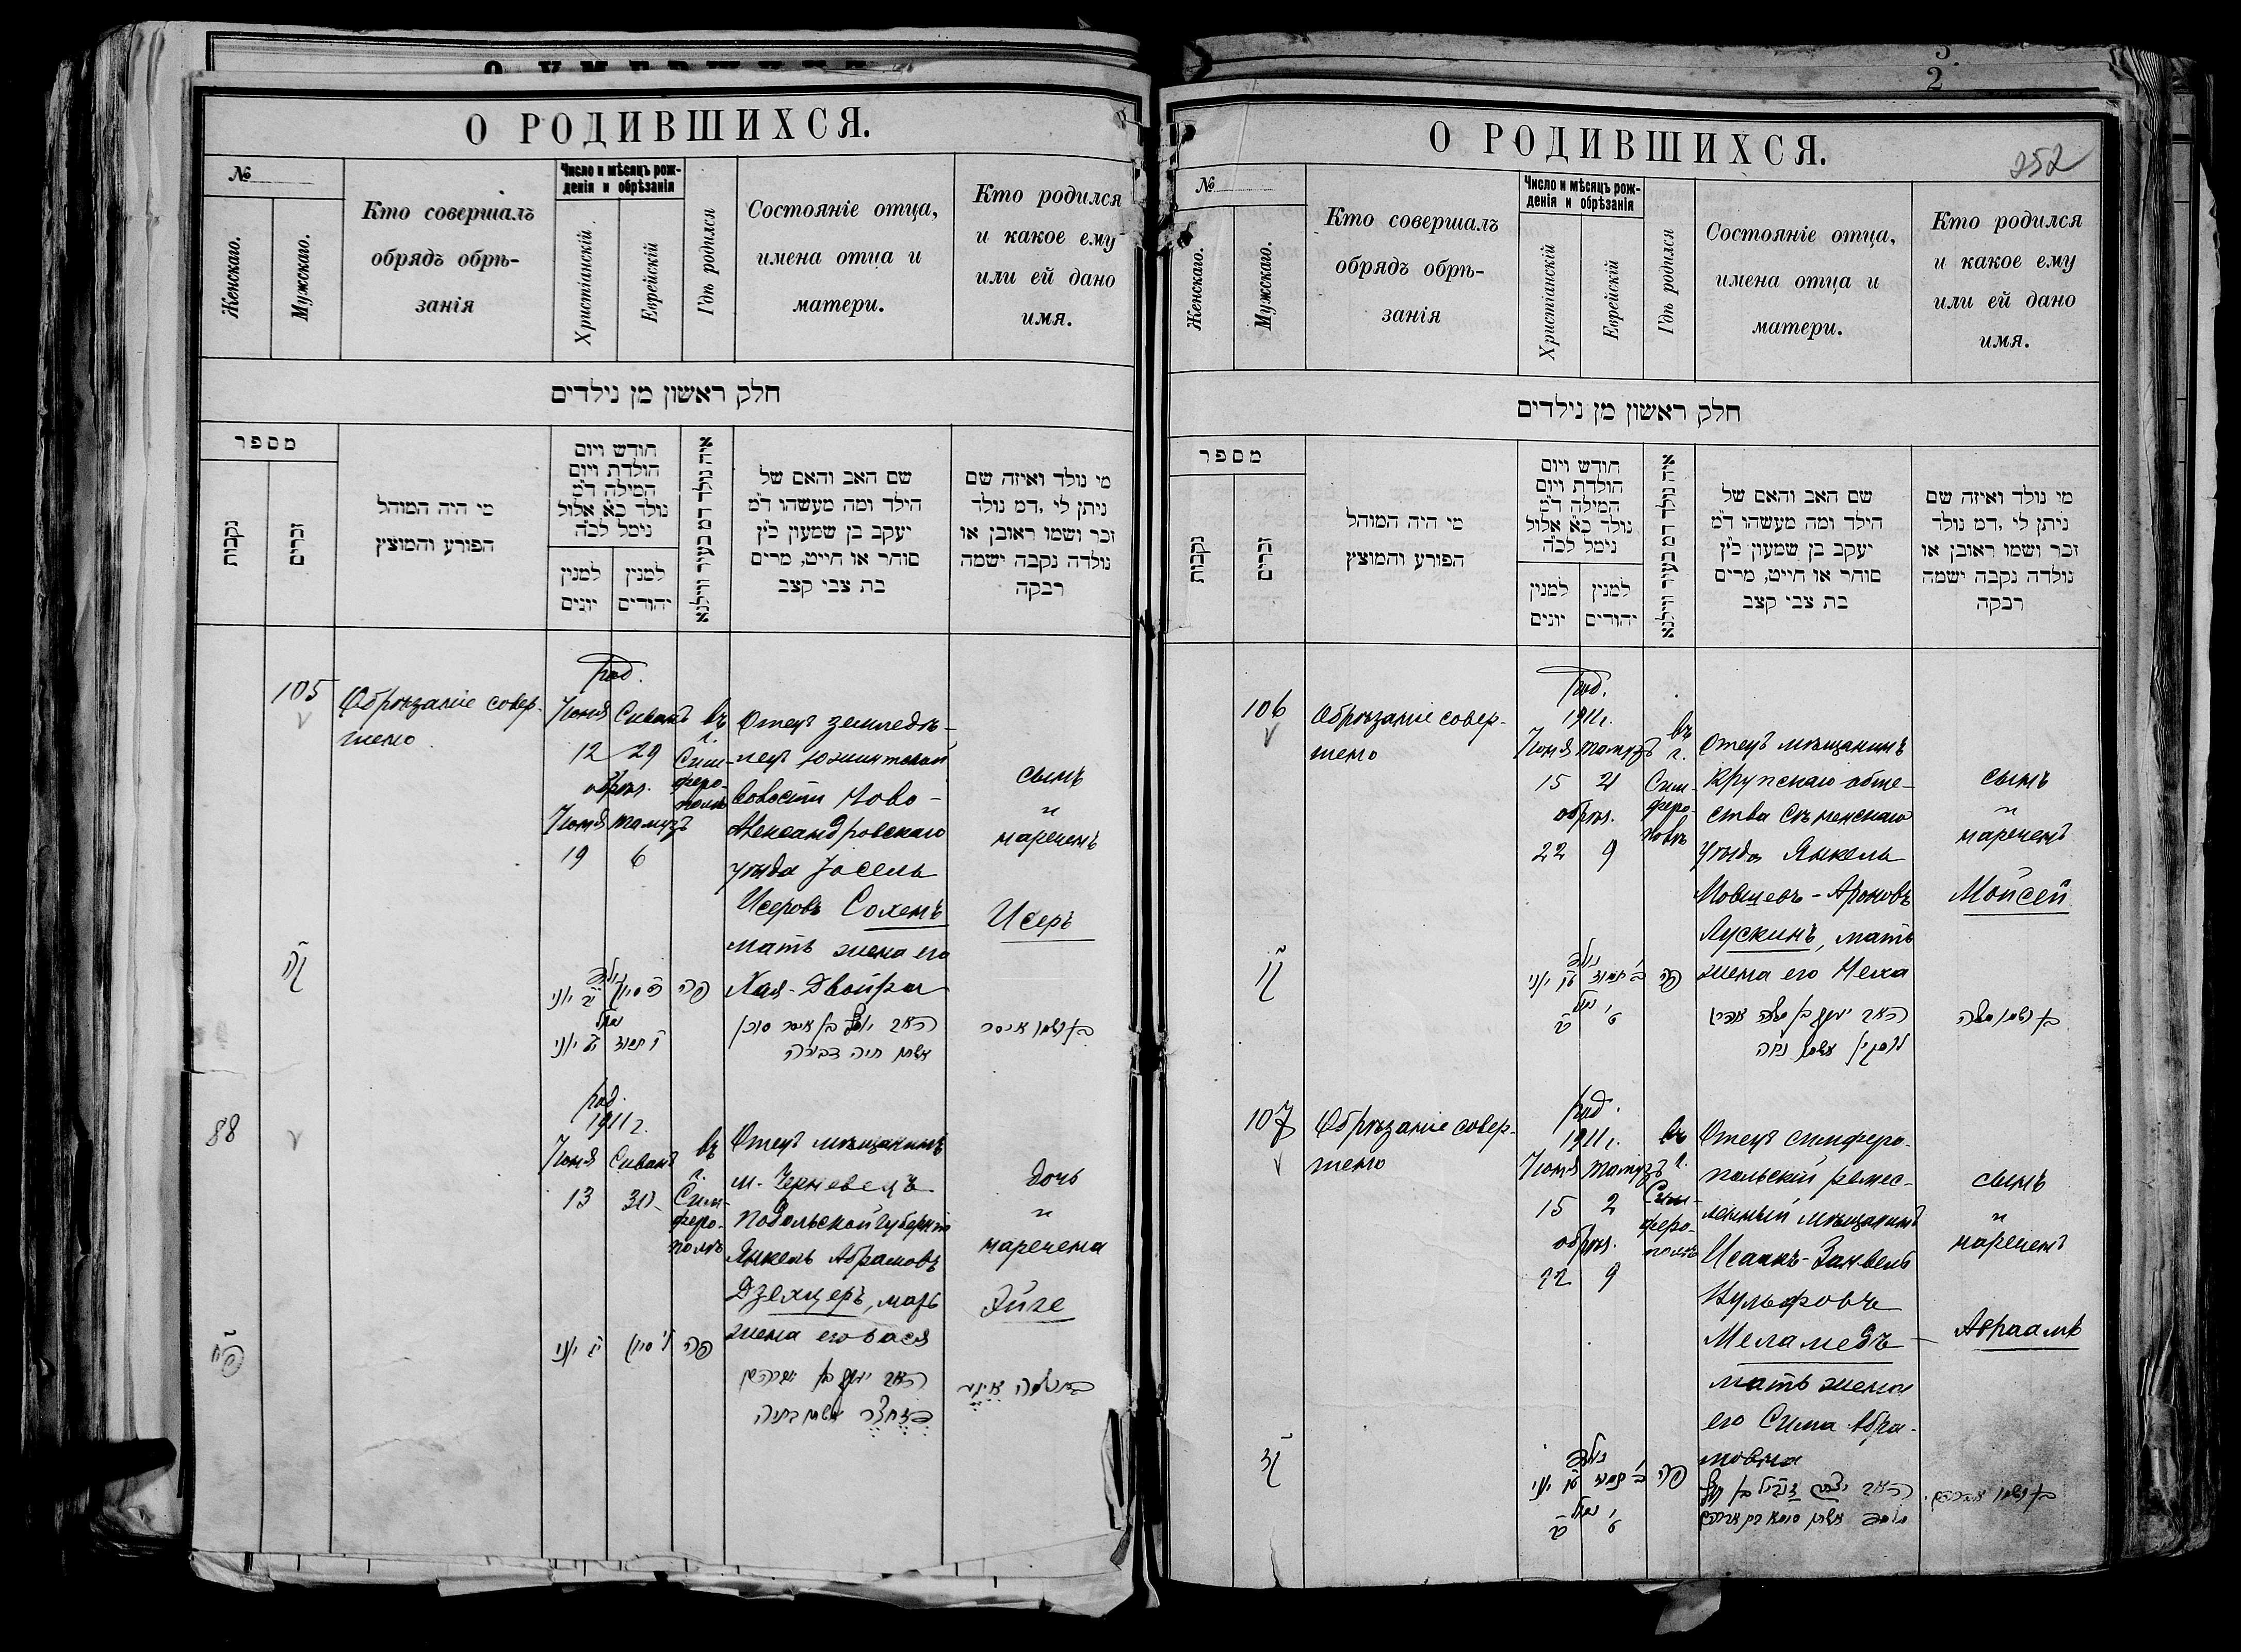 О РОДИВШИХСЯ.
№
Женскаго.
Мужскаго.
Кто совершалъ
обрядъ обрѣ-
занія
Число и мѣсяцъ рож-
денія и обрѣзанія
Христіанскій.
Еврейскій
Гдѣ родился
Состояніе отца,
имена отца и
матери.
Кто родился
и какое ему
или ей дано
имя.
חלק ראשון מן נילדים
מספר
נקבות
זכרים
מי היה המוהל
הפורע והמוצץ
חודש ויום
הולדת ויום
המילה ד״מ
נולד כ״א אלול
נימל לכ״ה
למנין
יונים
למנין
יהודים
איה נולד דמ בעיר ווילנא
שם האב והאם של
הילד ומה מעשהו ד״מ
יעקב בן שמעון כ״ץ
סוחר או חייט, מרים
בת צבי קצב
מי נולד ואיזה שם
ניתן לי, דמ נולד
זכר ושמו ראובן או
נולדה נקבה ישמה
רבקה
105
Обрѣзаніе совер-
шено
род.
Іюня Сиванъ
12 29
обрѣз.
Іюня Тамузъ
19 6
въ
г.
Сим-
феро-
полѣ
Отецъ земледѣ-
лецъ
волости Ново-
Александровскаго
уѣзда Іосель
Исеровъ Сохенъ
мать жена его
Хая-Двойра
сынъ
и
нареченъ
Исеръ
קה
נולד
כט סיון יב יוני
נמול
ו תמוז יט יוני
פה
האב יוסף בן איסר סוכן
אשתו חיה דבורה
בן ושמו איסר
88
род.
1911 г.
Іюня Сиванъ
13 30
въ
г.
Сим-
феро-
полѣ
Отецъ мѣщанинъ
м. Черневецъ
Подольской губерніи
Янкель Абрамовъ
Дзехцеръ, мать
жена его Бася
дочь
и
наречена
Эйге
פח
ל סיון יג יוני
פה
האב יעקב בן אברהם
אשתו בתיה
О РОДИВШИХСЯ.
252
№
Женскаго.
Мужскаго.
Кто совершалъ
обрядъ обрѣ-
занія
Число и мѣсяцъ рож-
денія и обрѣзанія
Христіанскій
Еврейскій
Гдѣ родился
Состояніе отца,
имена отца и
матери.
Кто родился
и какое ему
или ей дано
имя.
חלק ראשון מן נילדים
מספר
נקבות
זכרים
מי היה המוהל
הפורע והמוצץ
חודש ויום
הולדת ויום
המילה ד״מ
נולד כ״א אלול
נימל לכ״ה
למנין
יונים
למנין
יהודים
איה נולד דמ בעיר ווילנא
שם האב והאם של
הילד ומה מעשהו ד״מ
יעקב בן שמעון כ״ץ
סוחר או חייט, מרים
בת צבי קצב
מי נולד ואיזה שם
ניתן לי, דמ נולד
זכר ושמו ראובן או
נולדה נקבה ישמה
רבקה
106
Обрѣзаніе совер-
шено
Род.
1911 г.
Іюня Тамузъ
15 2
обрѣз.
22 9
въ
г.
Сим-
феро-
полѣ
Отецъ мѣщанинъ
Крупскаго обще-
ства Сѣненскаго
уѣзда Янкель
Мовшевъ-Ароновъ
Лускинъ, мать
жена его Неха
сынъ
и
нареченъ
Мойсей
קו
נולד
ב תמוז טו יוני
נמול
ט כב
פה
האב יעקב בן משה אהרן
לוסקין אשתו נחה
בן ושמו משה
107
Обрѣзаніе совер-
шено
род.
1911 г.
Іюня Тамузъ
15 2
обрѣз.
22 9
въ
г.
Сим-
феро-
полѣ
Отецъ симферо-
польскій ремес-
ленный мѣщанинъ
Исаакъ-Занвель
Вульфовъ
Меламедъ
мать жена
его Сима Абра-
мовна
сынъ
и
нареченъ
Авраамъ
קז
נולד
ב תמוז טו יוני
נמול
ט כב
פה
האב יצחק זנביל בן וולף
מלמד אשתו סימא בת אברהם
בן ושמו אברהם